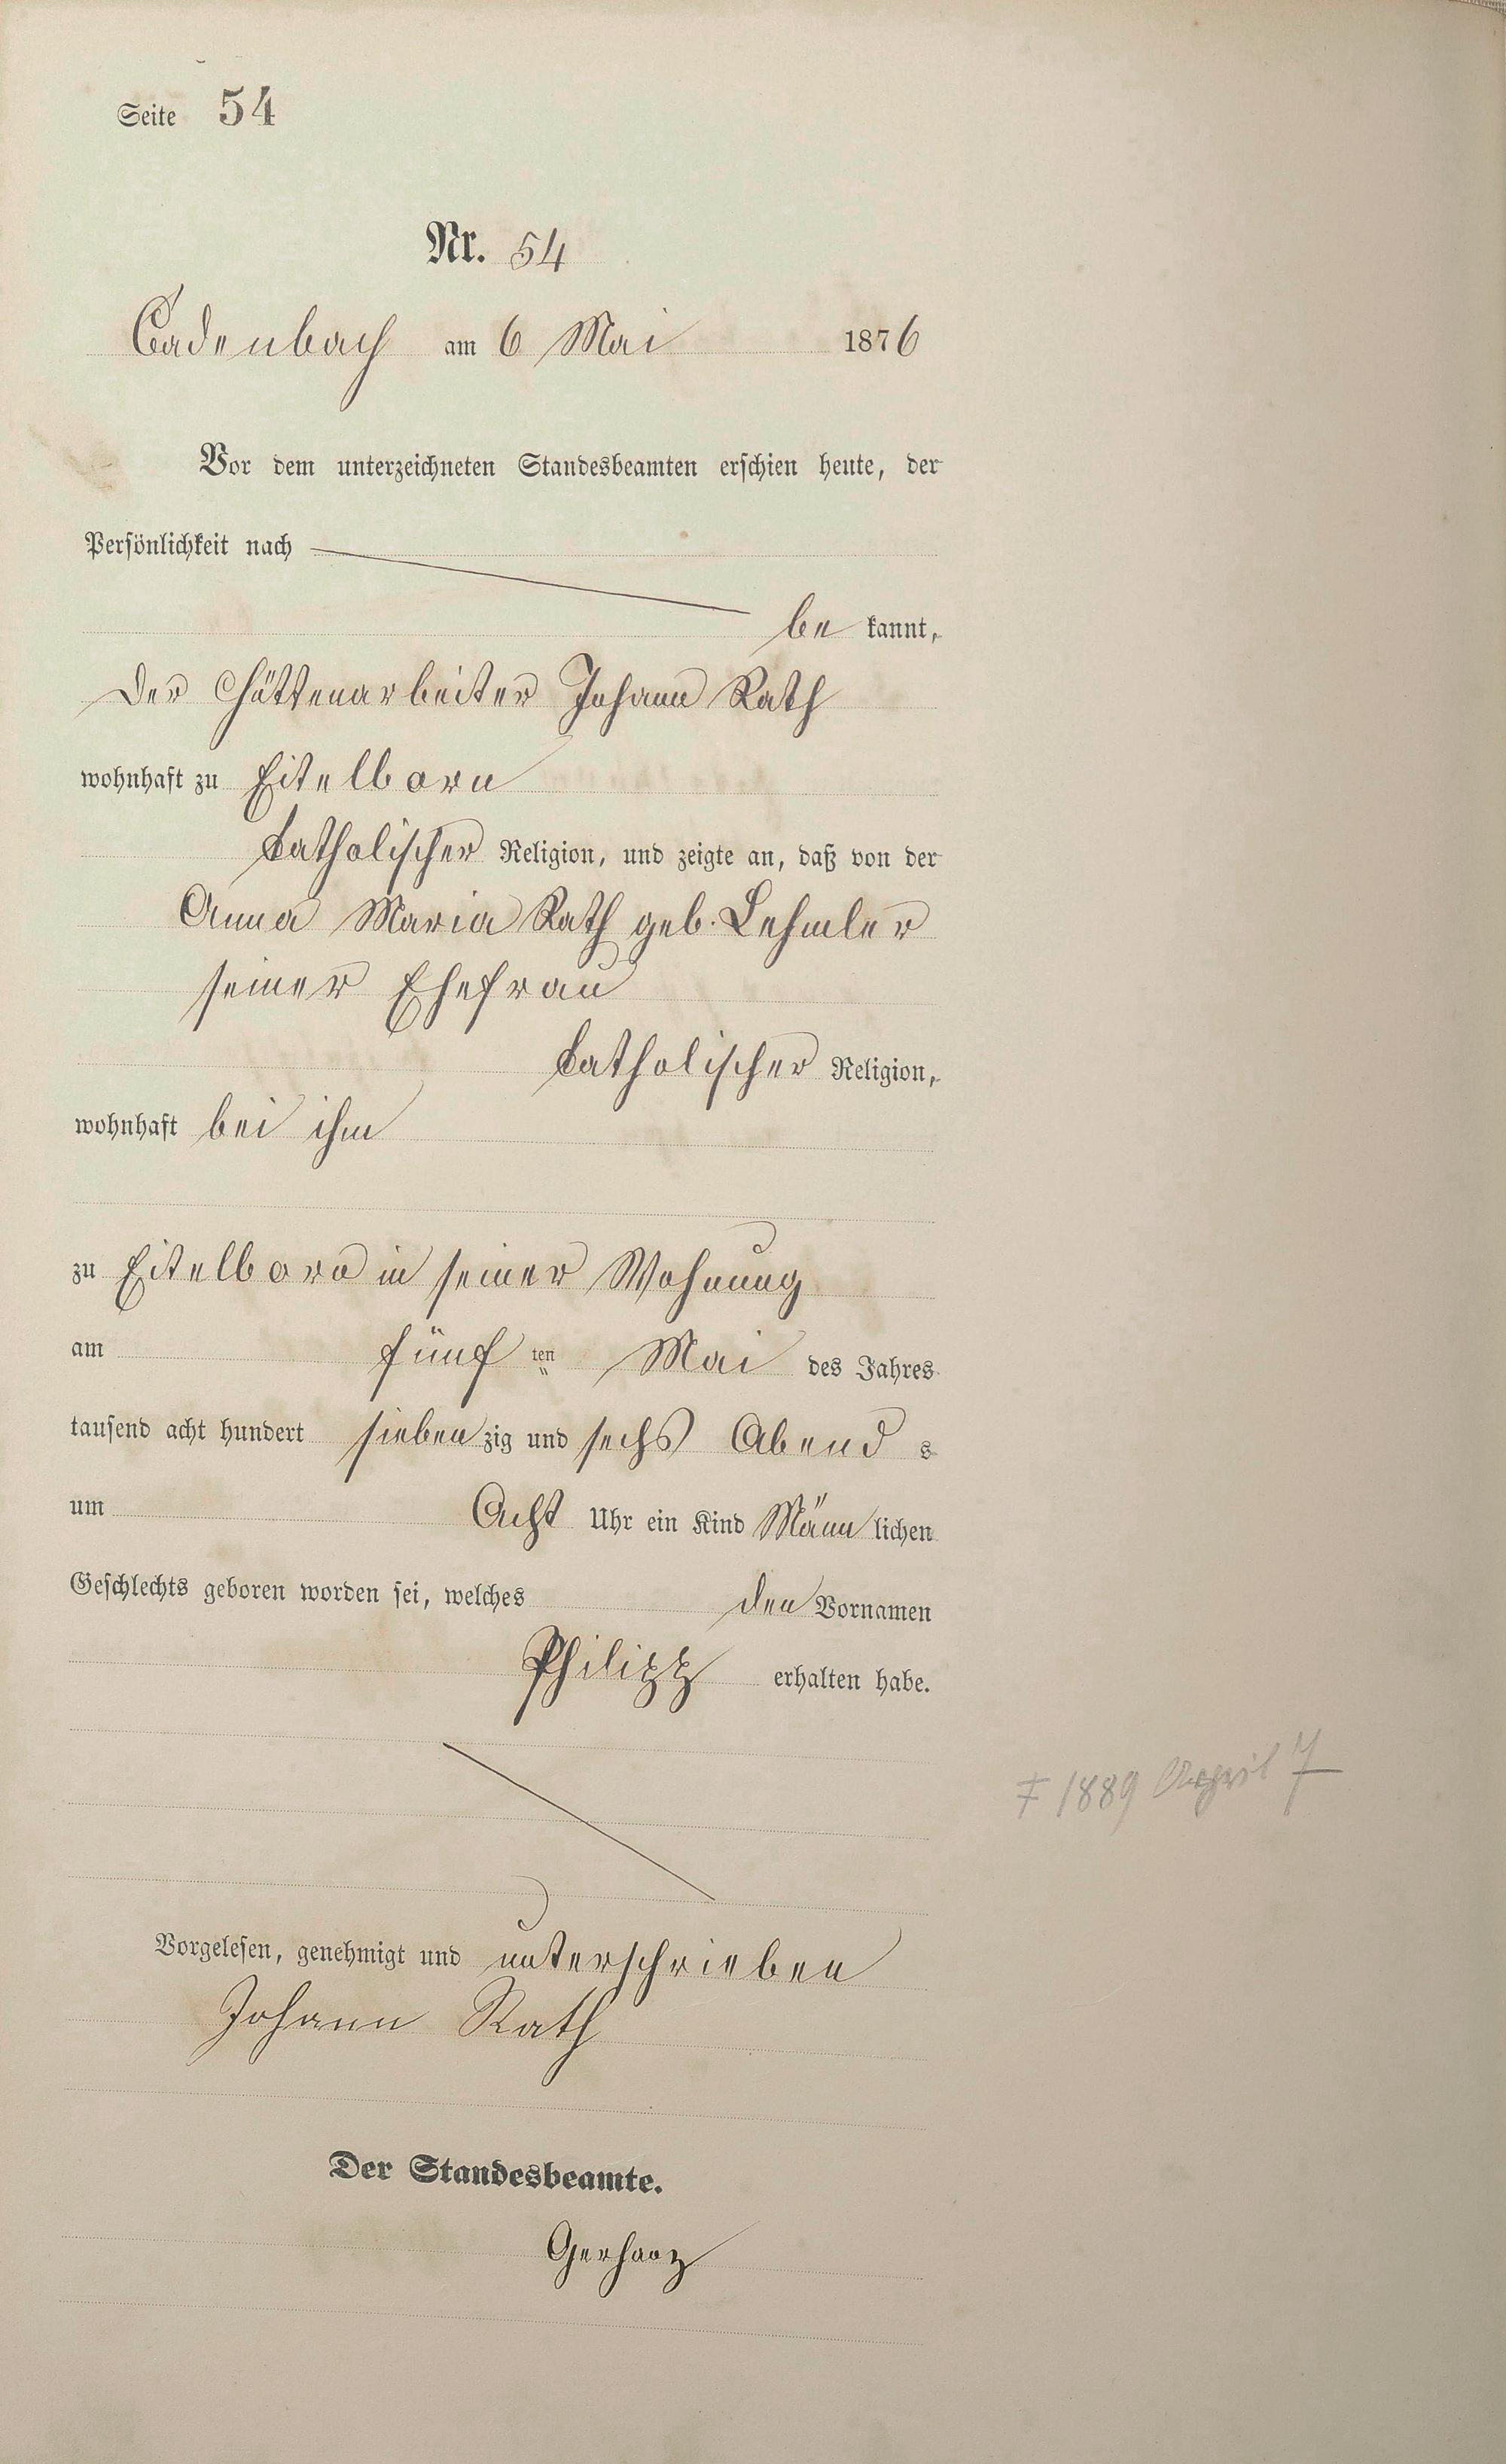 Seite 54
Nr. 54
Cadenbach am 6 Mai 1876
Vor dem unterzeichneten Standesbeamten erschien heute, der
Persönlichkeit nach
be kannt,
Der Hüttenarbeiter Johann Rath
wohnhaft zu Eitelborn
katholischer Religion, und zeigte an, daß von der
Anna Maria Rath geb. Lehmler
seiner Ehefrau
katholischer Religion,
wohnhaft bei ihm
zu Eitelborn in seiner Wohnung
am fünf ten Mai des Jahres
tausend acht hundert sieben zig und sechs Abend s
um Acht Uhr ein Kind Männ lichen
Geschlechts geboren worden sei, welches den Vornamen
Philipp erhalten habe.
‡ 1889 April 7
Vorgelesen, genehmigt und unterschrieben
Johann Rath
Der Standesbeamte.
Gerharz